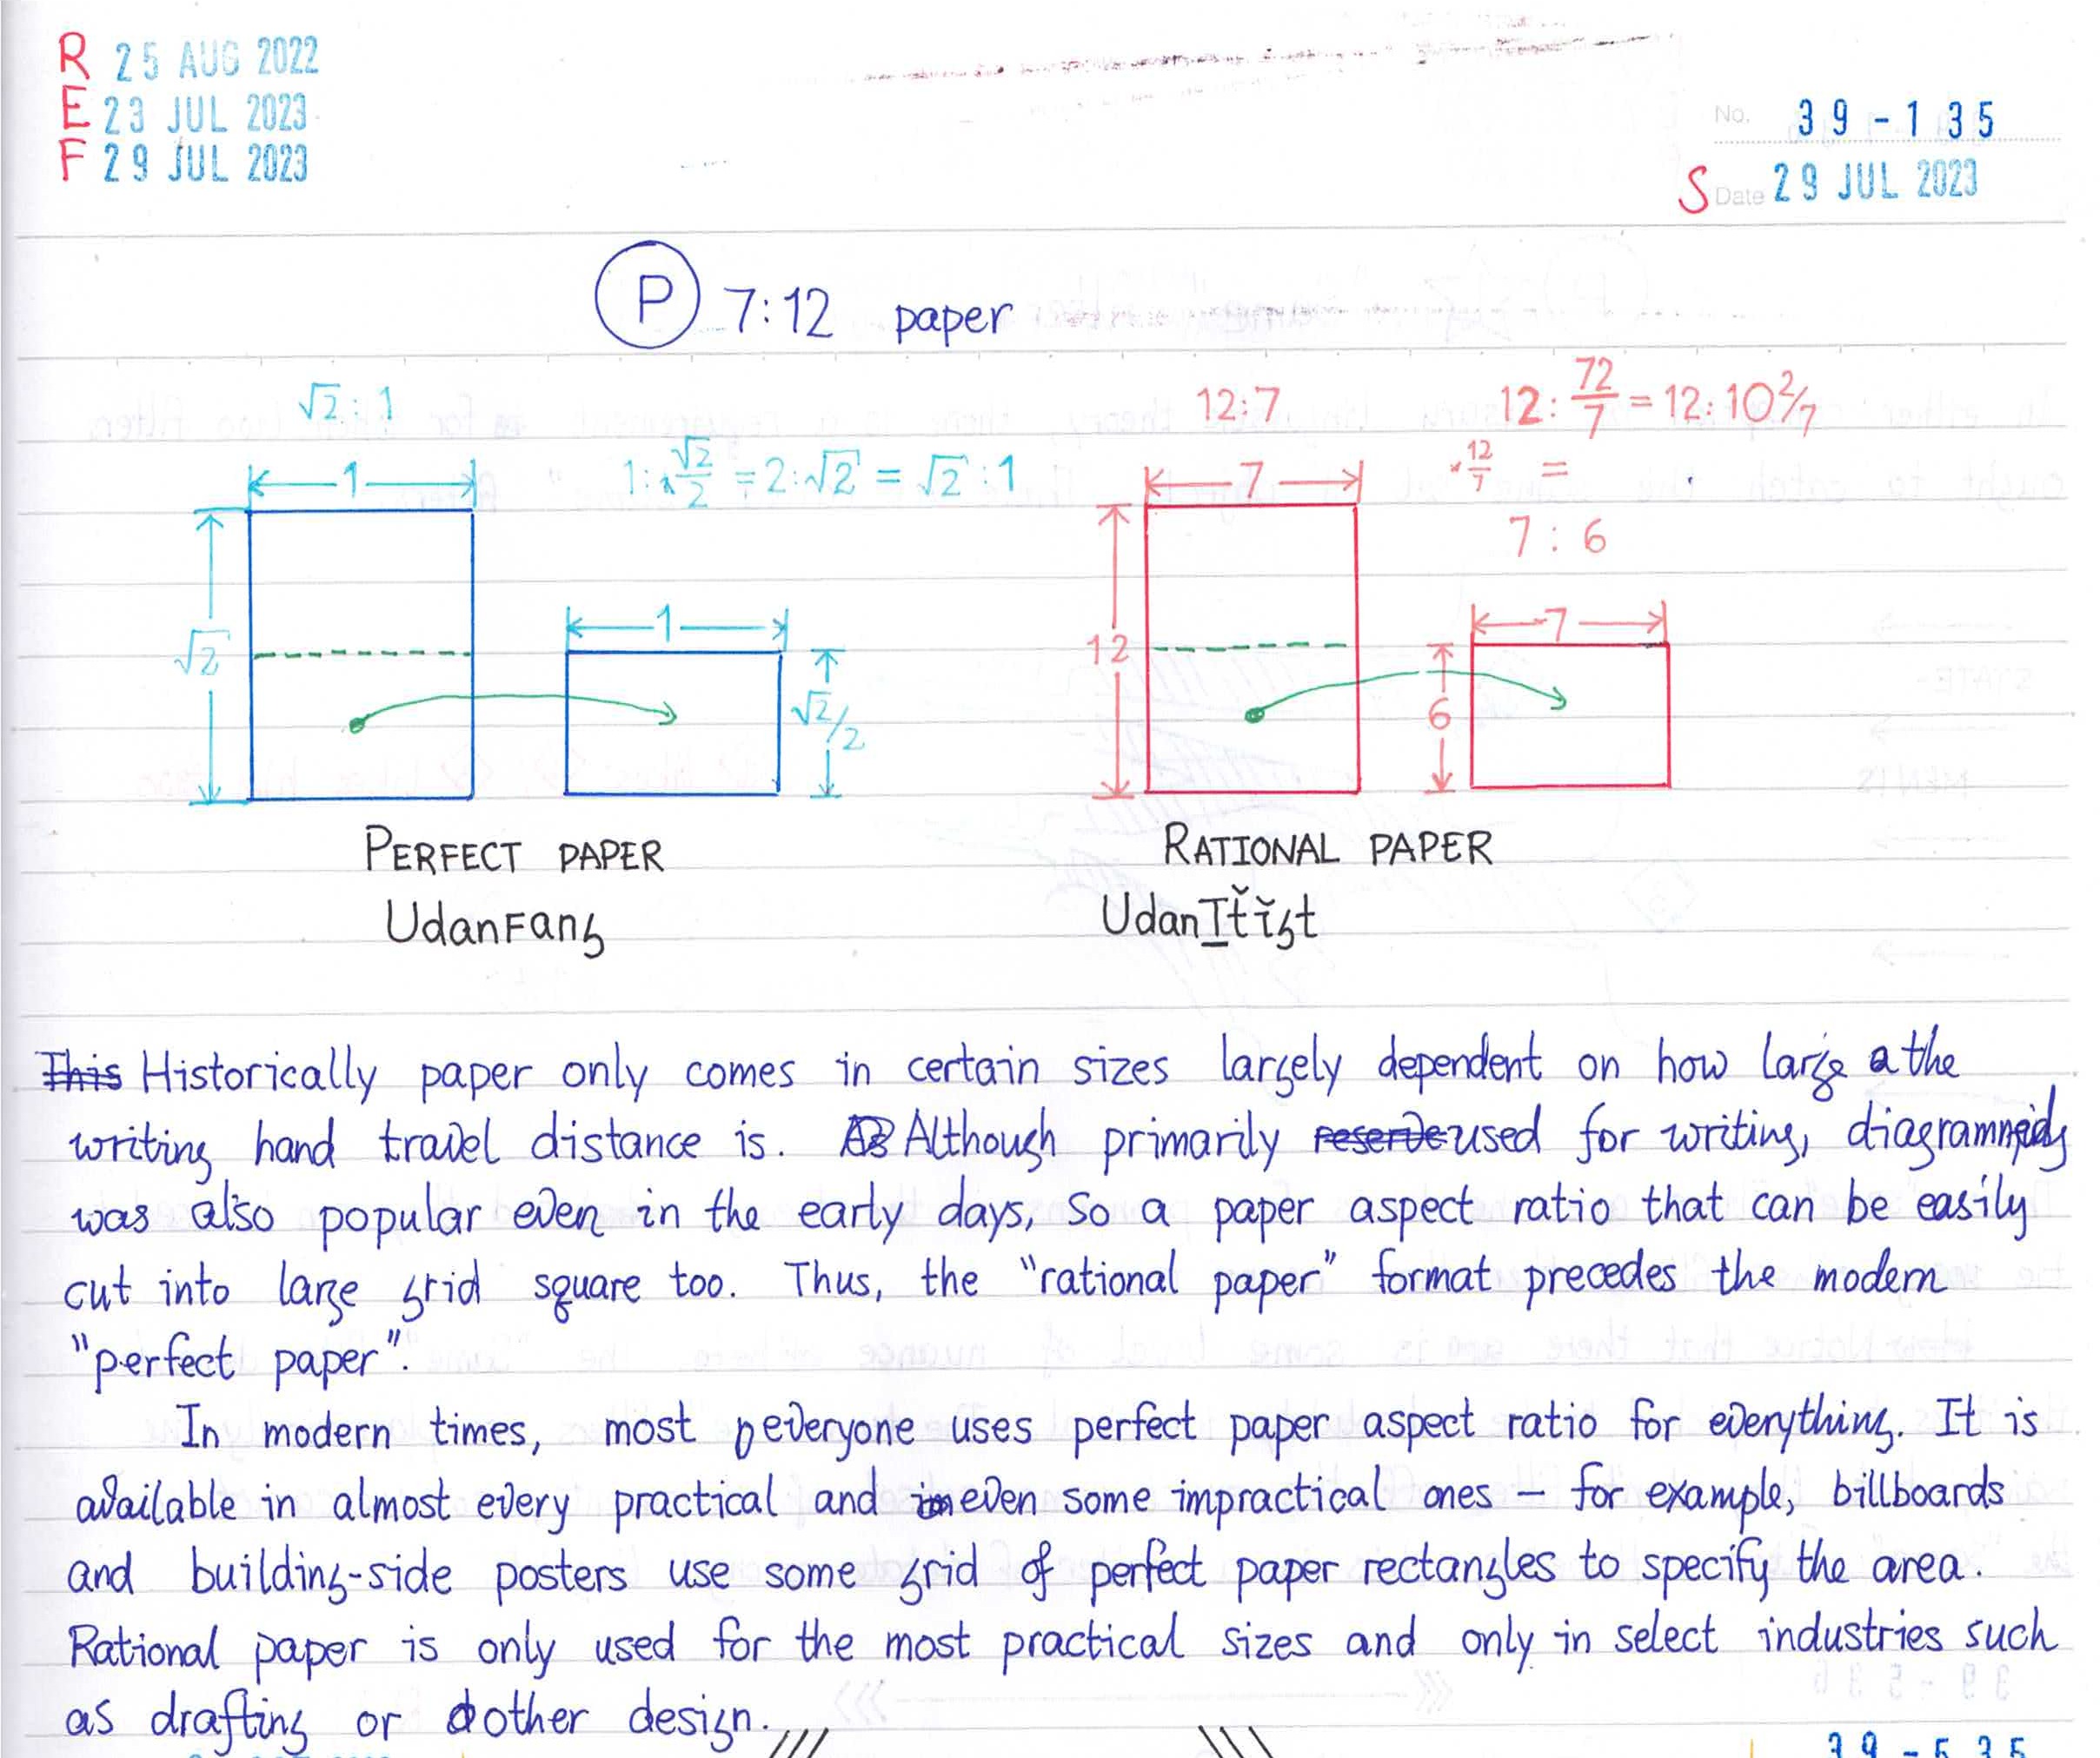 R 25 AUG 2022
E 23 JUL 2023
F 29 JUL 2023
No. 39-135
S Date 29 JUL 2023
P 7:12 paper
√2:1
1:√2/2 = 2:√2 = √2:1
1
√2
1
√2/2
12:7
12:72/7 = 12:10 2/7
×12/7 =
7:6
7
12
7
6
PERFECT PAPER
UdanFang
RATIONAL PAPER
This Historically paper only comes in certain sizes largely dependent on how large a the
writing hand travel distance is. Although primarily reserve used for writing, diagramming
was also popular even in the early days, so a paper aspect ratio that can be easily
cut into large grid square too. Thus, the "rational paper" format precedes the modern
"perfect paper".
In modern times, most everyone uses perfect paper aspect ratio for everything. It is
available in almost every practical and even some impractical ones – for example, billboards
and building-side posters use some grid of perfect paper rectangles to specify the area.
Rational paper is only used for the most practical sizes and only in select industries such
as drafting or other design.
39-535